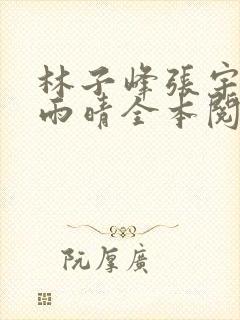 林子峰張宇
雨晴全本閱
阮厚廣